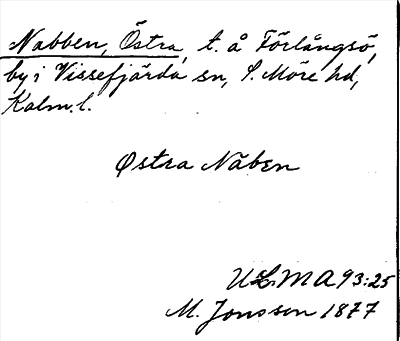 Nabben, Östra, t. å Förlångsö,
by i Vissefjärda sn, S. Möre hd,
Kalm. l.
Østra Näben
ULMA 93:25
M. Jonsson 1877